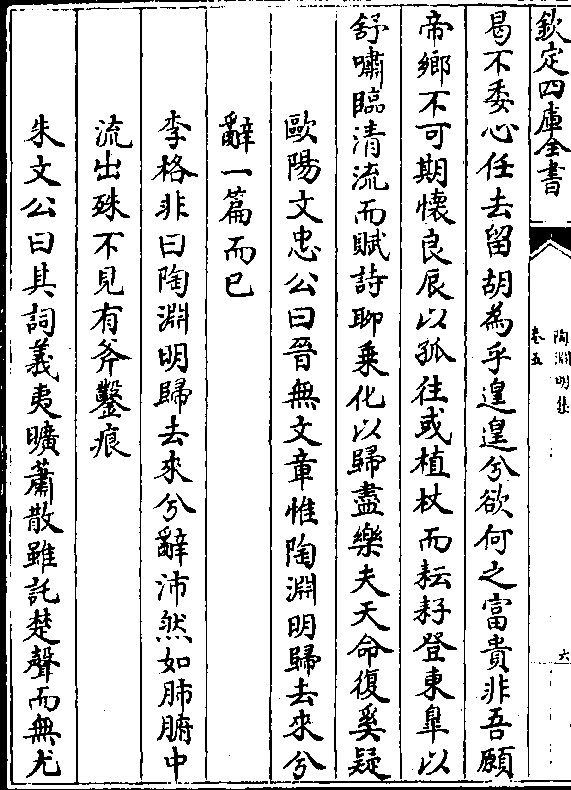 欽定四庫全書
陶淵明集
卷五
六
曷不委心任去留胡為乎遑遑兮欲何之富貴非吾願
帝鄉不可期懷良辰以孤往或植杖而耘耔登東臯以
舒嘯臨清流而賦詩聊乗化以歸盡樂夫天命復奚疑
歐陽文忠公曰晉無文章惟陶淵明歸去來兮
辭一篇而已
李格非曰陶淵明歸去來兮辭沛然如肺腑中
流出殊不見有斧鑿痕
朱文公曰其詞義夷曠蕭散雖託楚聲而無尤